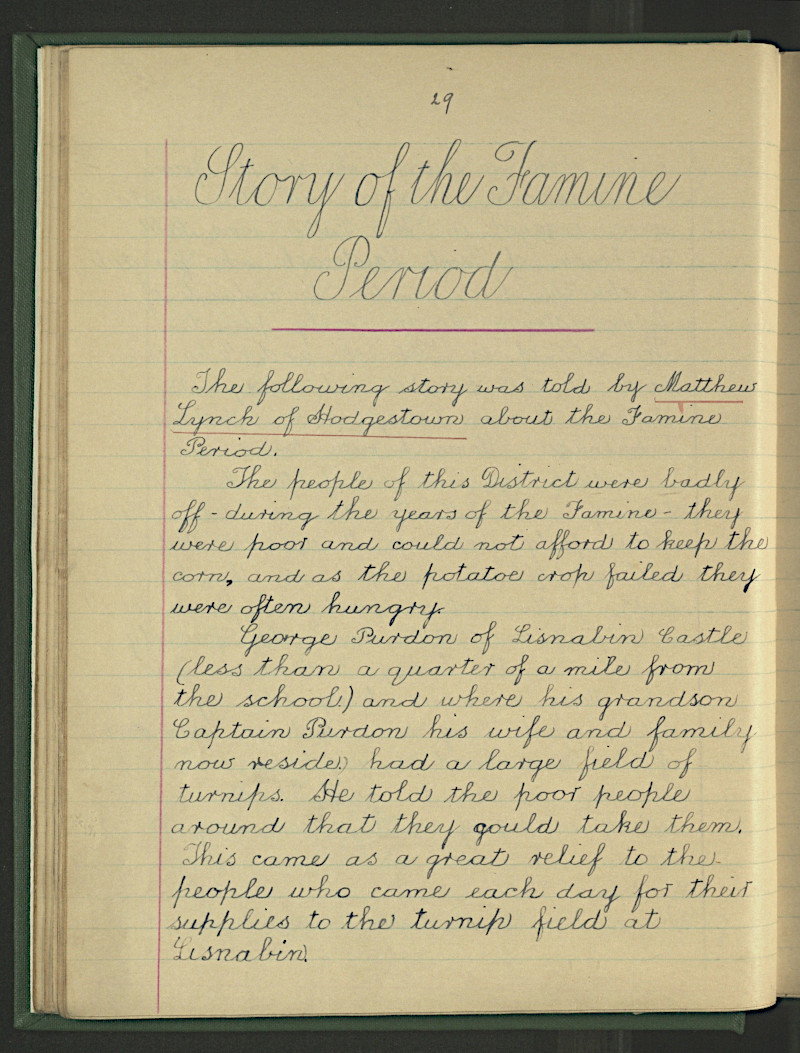 29
Story of the Famine
Period
The following story was told by Matthew
Lynch of Hodgestown about the Famine
Period.
The people of this District were badly
off - during the years of the Famine - they
were poor and could not afford to keep the
corn, and as the potatoe crop failed they
were often hungry.
George Purdon of Lisnabin Castle
(less than a quarter of a mile from
the school) and where his grandson
Captain Purdon his wife and family
now reside) had a large field of
turnips. He told the poor people
around that they gould take them.
This came as a great relief to the
people who came each day for their
supplies to the turnip field at
Lisnabin.